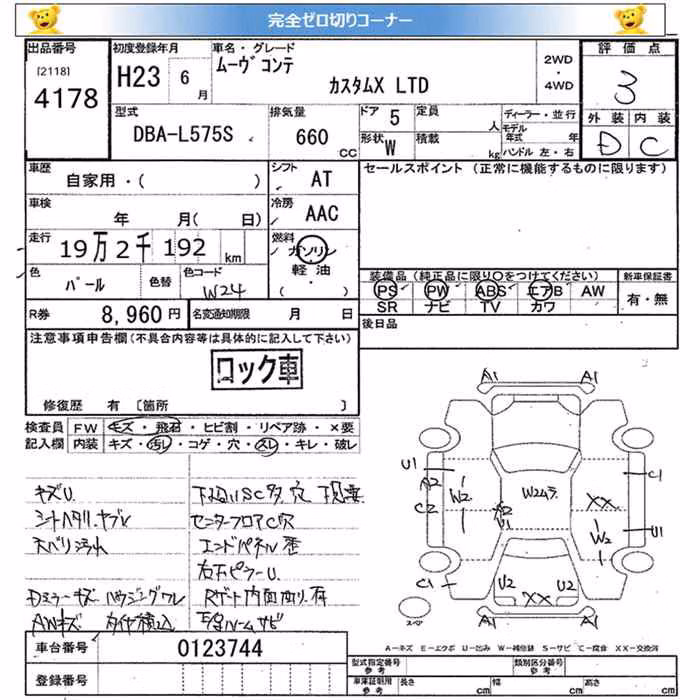 完全ゼロ切りコーナー
出品番号 初度登録年月 車名・グレード 2WD・4WD 評価点
[2118] 4178 H23 6月 ムーヴ コンテ カスタムX LTD 3
型式 DBA-L575S 排気量 660 CC ドア 5 定員 人 ディーラー・並行 外装 内装
形状 W 積載 kg モデル年式 年 ハンドル 左・右 D C
車歴 自家用・( ) シフト AT セールスポイント (正常に機能するものに限ります)
車検 年 月( 日) 冷房 AAC
走行 19万2千192 km 燃料 ガソリン・軽油・( )
色 パール 色替 色コード W24
装備品 (純正品に限り〇をつけてください) 新車保証書
PS PW ABS エアB AW 有・無
SR ナビ TV カワ
R券 8,960円 名変通知期限 月 日 後日品
注意事項申告欄(不具合内容等は具体的に記入して下さい)
ロック車
修復歴 有 〔箇所 〕
検査員 FW キズ・飛石・ヒビ割・リペア跡・×要
記入欄 内装 キズ・汚レ・コゲ・穴・スレ・キレ・破レ
キズU
シートヘタリ.ヤブレ センターフロアC穴
天バリ汚れ エンドパネル歪
右Fピラー U.
Dミラーキズ ハウジングワレ Rゲート内面凹り.有
AWキズ タイヤ積込
A1 A1
U1 C1
A2 W2 W2ムラ XX
C2 A2 U1 W2 U1
C1 U2 XX U2
スペア A1 A1
A-キズ E-エクボ U-凹み W-補修跡 S-サビ C-腐食 XX-交換済
車台番号 0123744 型式指定番号 参考 類別区分番号 参考
登録番号 車庫証明用 参考 長さ cm 幅 cm 高さ cm